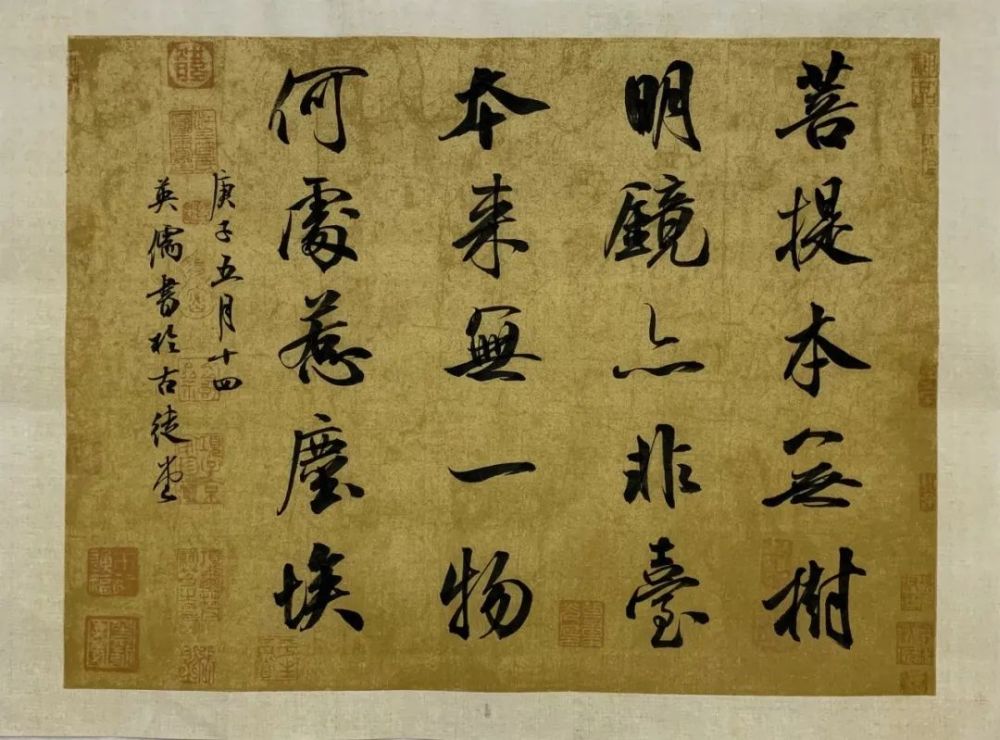 菩提本无樹
明鏡亦非臺
本来無一物
何處惹塵埃
庚子五月十四
英儒書於古徒堂